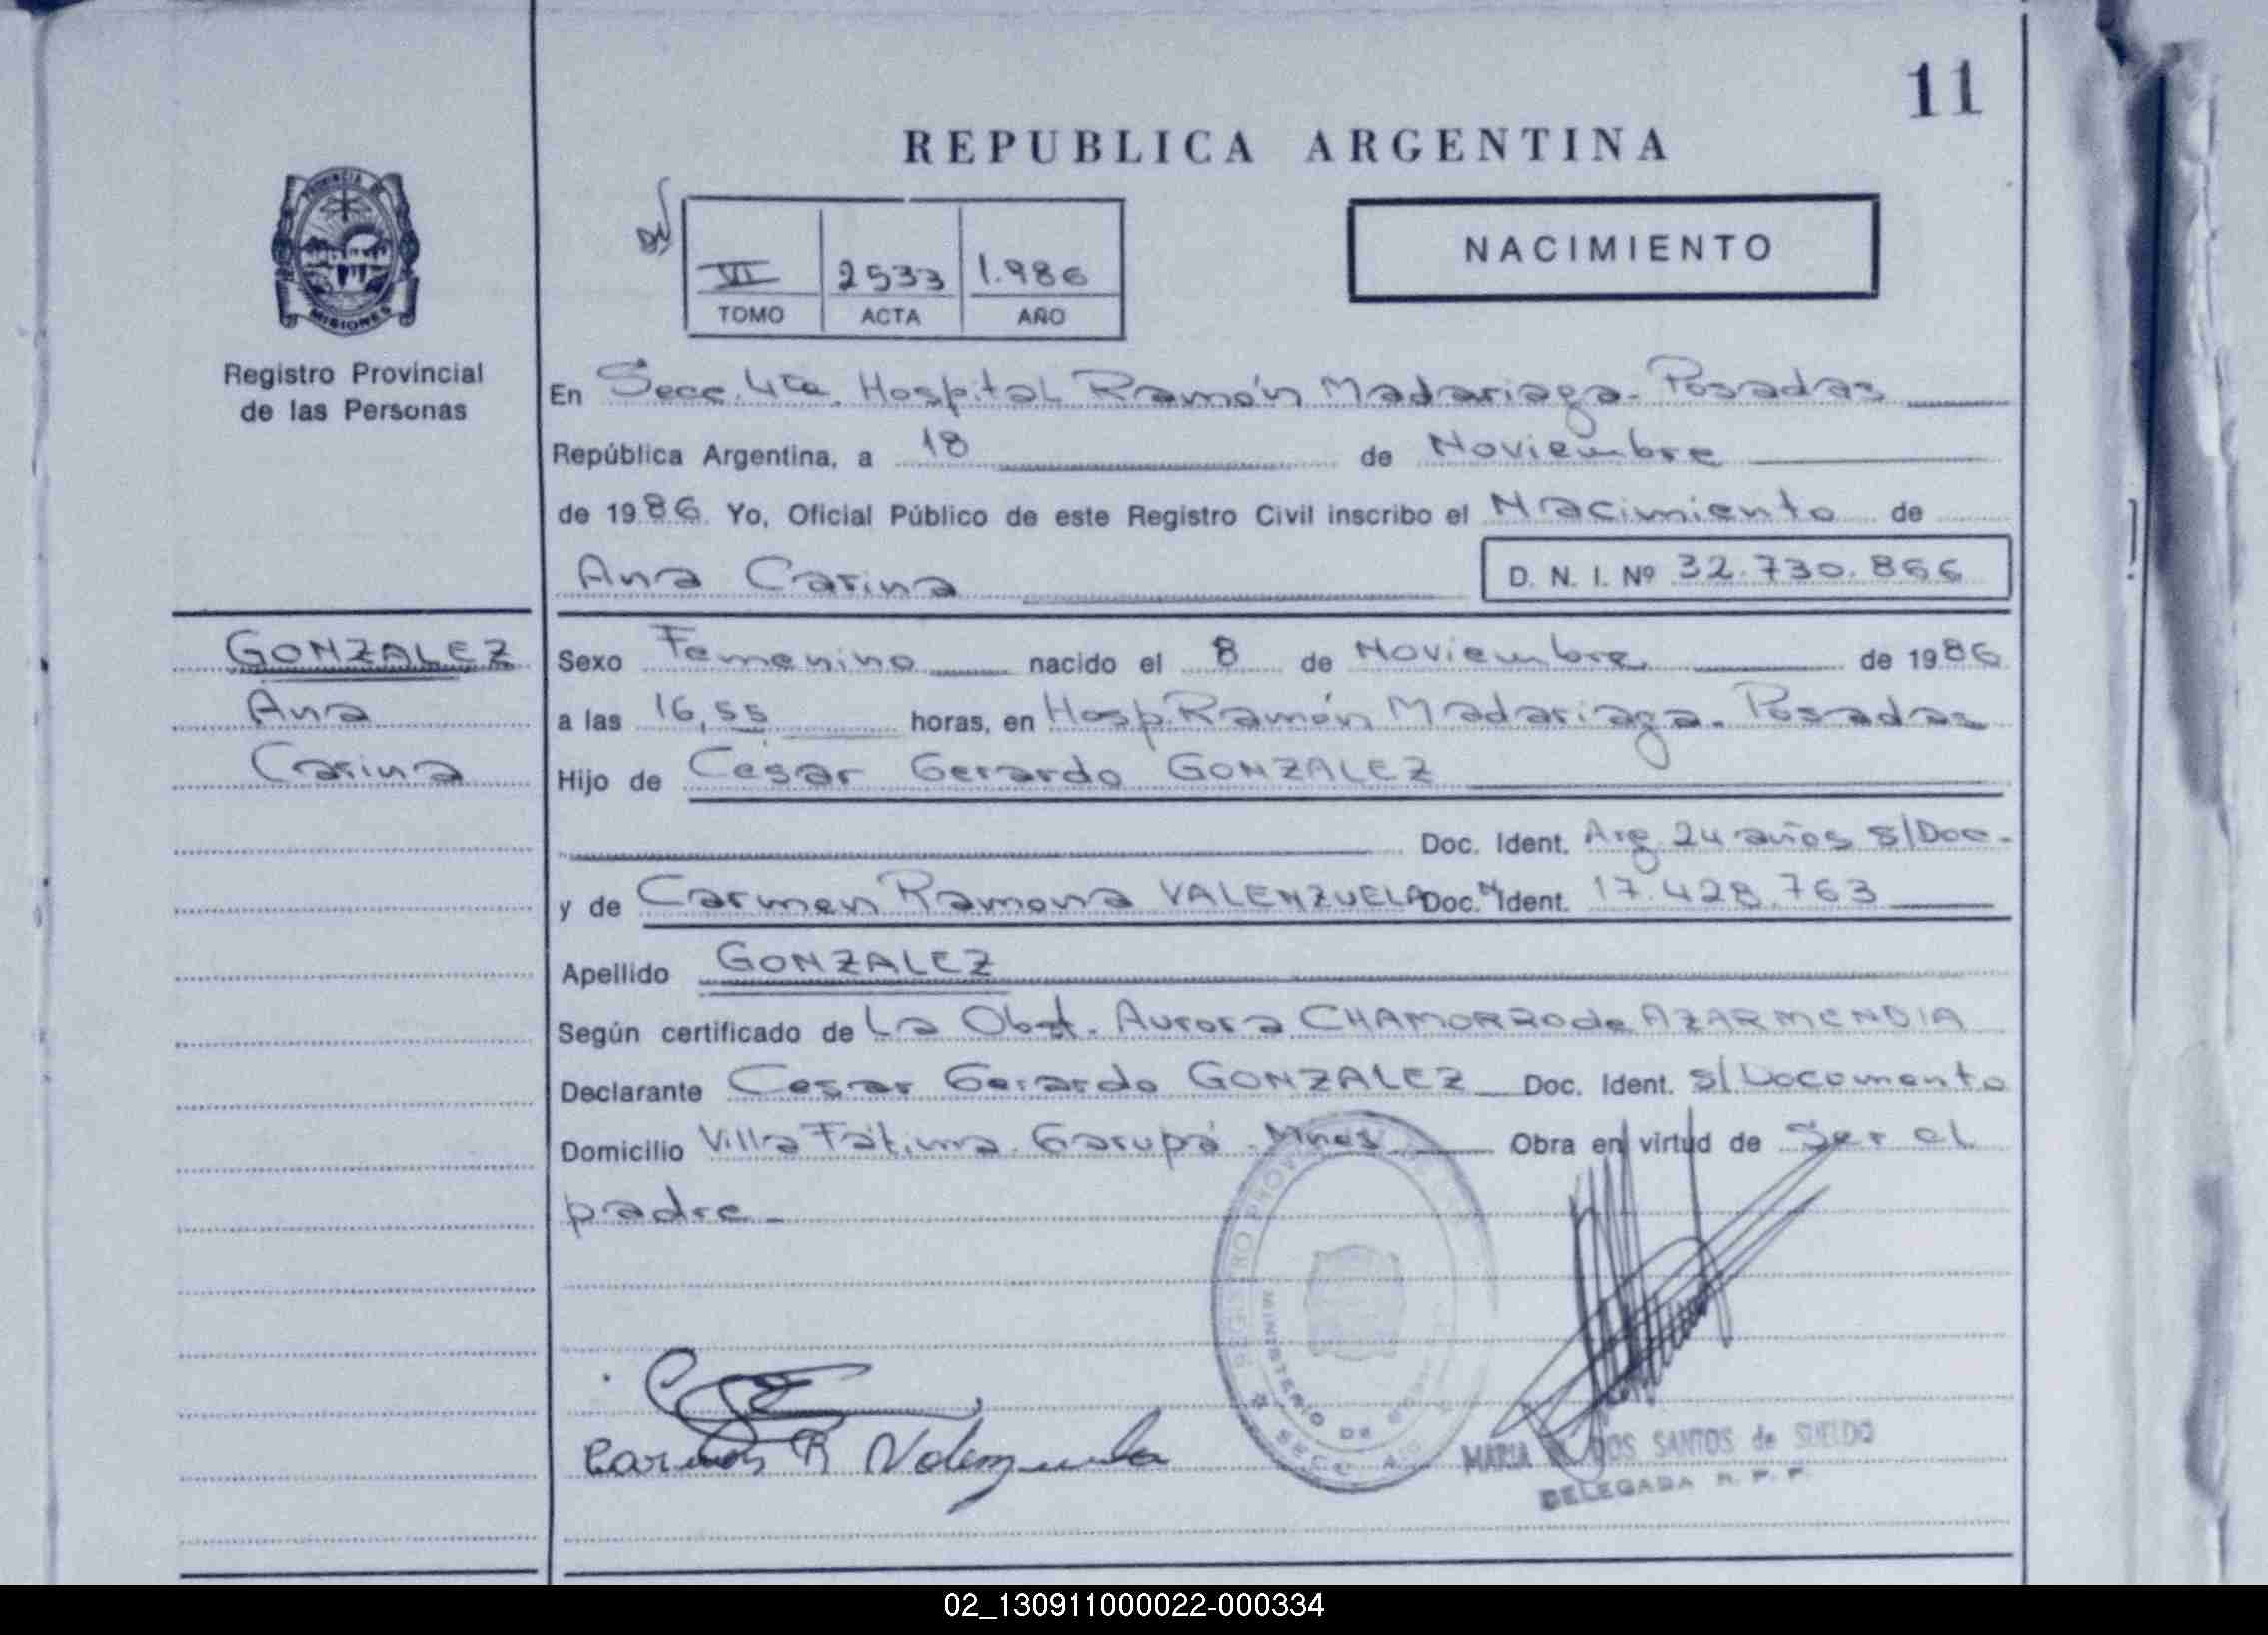 11
REPUBLICA ARGENTINA
PROVINCIA DE
MISIONES
Registro Provincial
de las Personas
VI 2533 1.986
TOMO ACTA AÑO
NACIMIENTO
En Secc. 4ta. Hospital Ramón Madariaga. Posadas
República Argentina, a 18 de Noviembre
de 1986. Yo, Oficial Público de este Registro Civil inscribo el Nacimiento de
Ana Carina D. N. I. Nº 32.730.866
GONZALEZ
Ana
Carina
Sexo Femenino nacido el 8 de Noviembre de 1986
a las 16,55 horas, en Hosp. Ramón Madariaga. Posadas
Hijo de Cesar Gerardo GONZALEZ
Doc. Ident. Arg. 24 años S/Doc.
y de Carmen Ramona VALENZUELA Doc. Ident. 17.428.763
Apellido GONZALEZ
Según certificado de La Obst. Aurora CHAMORRO de AZARMENDIA
Declarante Cesar Gerardo GONZALEZ Doc. Ident. S/Documento
Domicilio Villa Fátima. Garupá. Mnes Obra en virtud de Ser el
padre.
REGISTRO PROVINCIAL
MINISTERIO DE
Carmen R Valenzuela
MARIA DOS SANTOS de SUELDO
DELEGADA R. P. P.
02_130911000022-000334